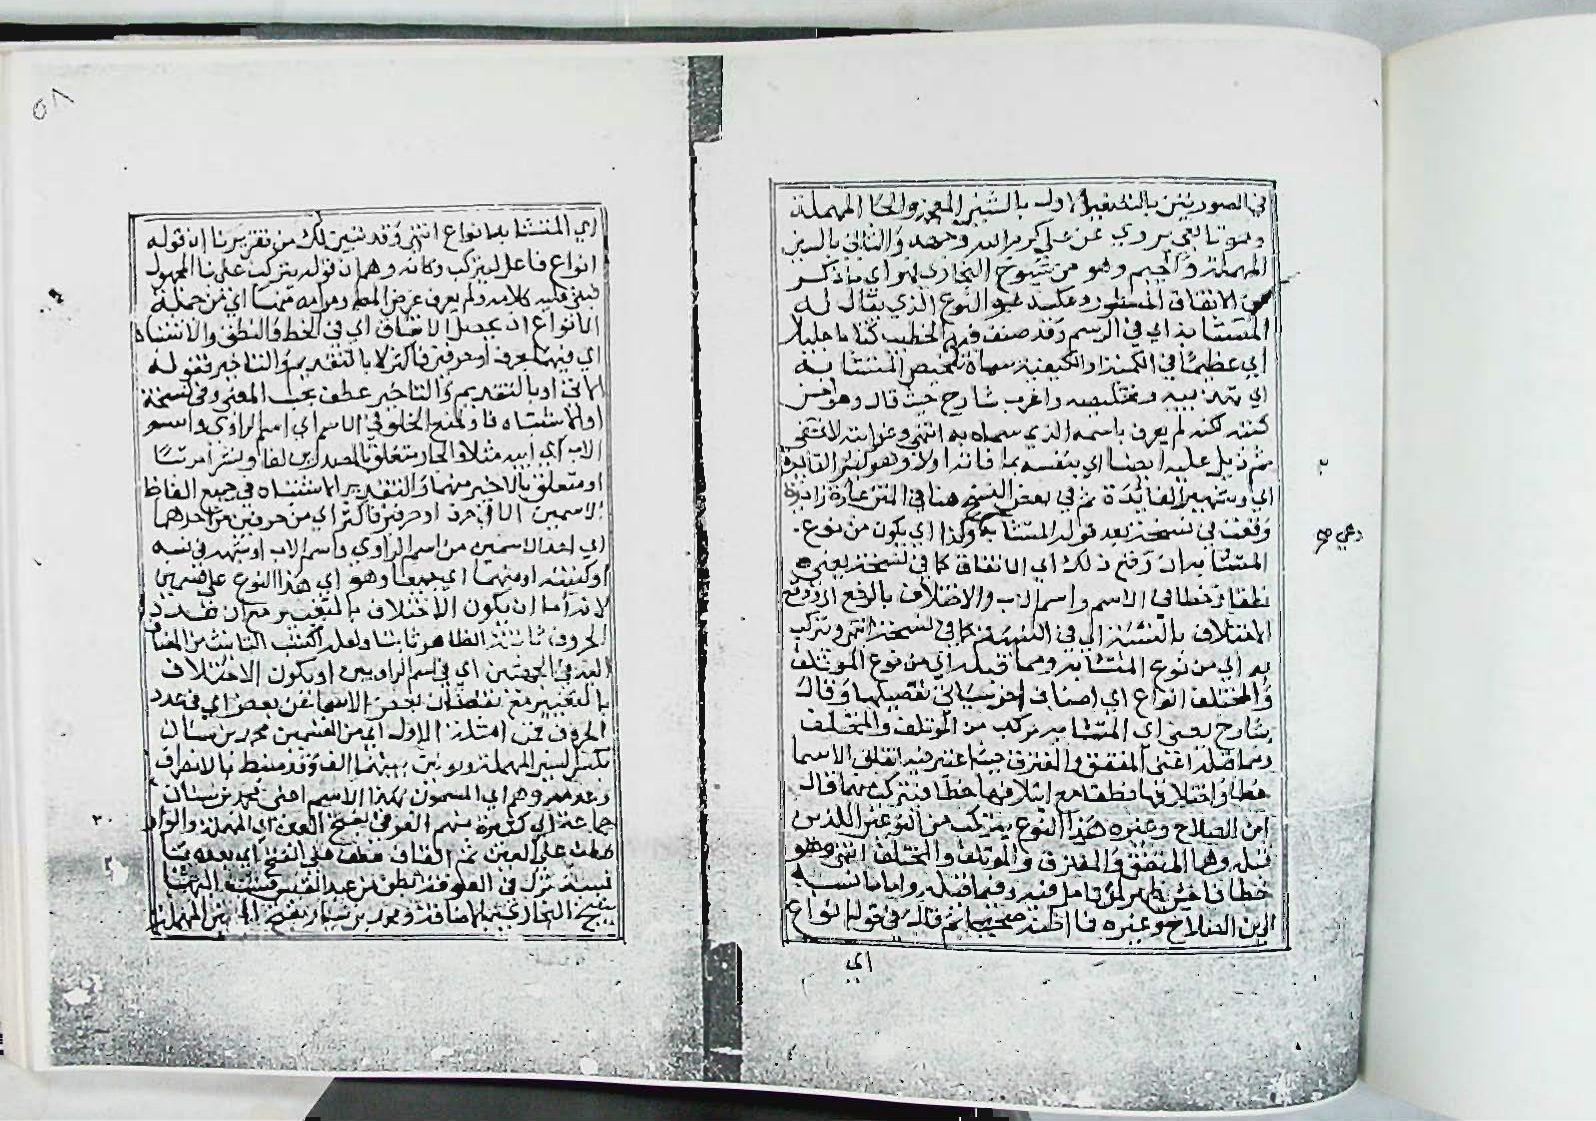 في الصورتين بالتخفيف الاول بالشين المعجمة والحا المهملة
وهو تابعي يروي عن علي كرم الله وجهه والثاني بالسين
المهملة والجيم وهو من شيوخ البخاري فهو اي ما ذكر
من الاتفاق المسطور وعكسه هو النوع الذي يقال له
المتشابه اي في الرسم وقد صنف فيه الخطيب كتابا جليلا
اي عظيما في الكمية او الكيفية سماه تلخيص المتشابه
اي تهذيبه وتخليصه واغرب شارح حيث قال وهو احسن
كتبه لكنه لم يعرف باسمه الذي سماه به انتهى وغرابته لا تخفى
ثم ذيل عليه ايضا اي بنفسه بما فاته اولا وهو كثير الفائدة
اي وشهير الفائدة ثم في بعض النسخ هنا في المتن عبارة زائدة
وقعت في نسخة بعد قوله المتشابه وكذا اي يكون من نوع
المتشابه ان وقع ذلك اي الاتفاق كما في نسخة يعني
نطقا وخطا في الاسم واسم الاب والاختلاف بالرفع اي ووقع
الاختلاف بالنسبة اي في النسبة كما في نسخة انتهى ويتركب
منه اي من نوع المتشابه ومما قبله اي من نوع الموتلف
والمختلف انواع اي اصناف اخر سياتي تفصيلها وقال
شارح يعني اي المتشابه يركب من الموتلف والمختلف
ومما قبله اعني المتفق والمفترق حيث اعتبر فيه اتفاق الاسما
خطا واختلافها نطقا مع ايتلافها خطا فيتركب منهما قال
ابن الصلاح وغيره هذا النوع يتركب من النوعين اللذين
قبله وهما المتفق والمفترق والموتلف والمختلف انتهى وهو
خطا فاحش يظهر لمن تامل فيه وفيما قبله واما ما نسبه
الى ابن الصلاح وغيره فما اظنه صحيحا ثم قال في قوله انواع
اي
وهي صح
٥٨
اي المتشابه انواع انتهى وقد تبين لك من تقريرنا ان قوله
انواع فاعل ليتركب وكانه وهم ان قوله يتركب على بنا المجهول
فبنى عليه كلامه ولم يعرف غرض المص ومرامه منها اي من جملة
الانواع ان يحصل الاتفاق اي في الخط والنطق والاشتباه
اي فيهما بحرف او حرفين فاكثر لا بالتقديم والتاخير فقوله
الاتي او بالتقديم والتاخير عطف بحسب المعنى وفي نسخة
او الاشتباه فاو لمنع الخلو في الاسم اي اسم الراوي واسم
الاب اي ابيه مثلا والجار متعلق بالمصدرين لفا ونشرا مرتبا
او متعلق بالاخير منهما والتقدير الاشتباه في جميع الفاظ
الاسمين الا في حرف او حرفين فاكثر اي من حرفين من احدهما
اي احد الاسمين من اسم الراوي واسم الاب او شهد في نسبه
او كنيته او منهما اي جميعا وهو اي هذا النوع على قسمين
لانه اما ان يكون الاختلاف بالتغيير مع ان عدد
الحروف ثابتة الظاهر ثابت ولعله اكتسب التانيث من المضاف
اليه في الجهتين اي في اسم الراويين او يكون الاختلاف
بالتغيير مع نقصان بعض الاسما عن بعض اي في عدد
الحروف فمن امثلة الاول اي من القسمين محمد بن سنان
بكسر السين المهملة ونونين بينهما الف وقد ضبط بالانصراف
وعدمه وهم اي المسمون بهذا الاسم اعني محمد بن سنان
جماعة اي كثيرة منهم العوقي بفتح العين اي المهملة والواو
عطف على العين ثم القاف عطف على الفتح اي بعدهما
نسبة نزل في العوقة بطن من عبد القيس فنسب اليها
شيخ البخاري بالاضافة ومحمد بن سيار بفتح السين المهملة